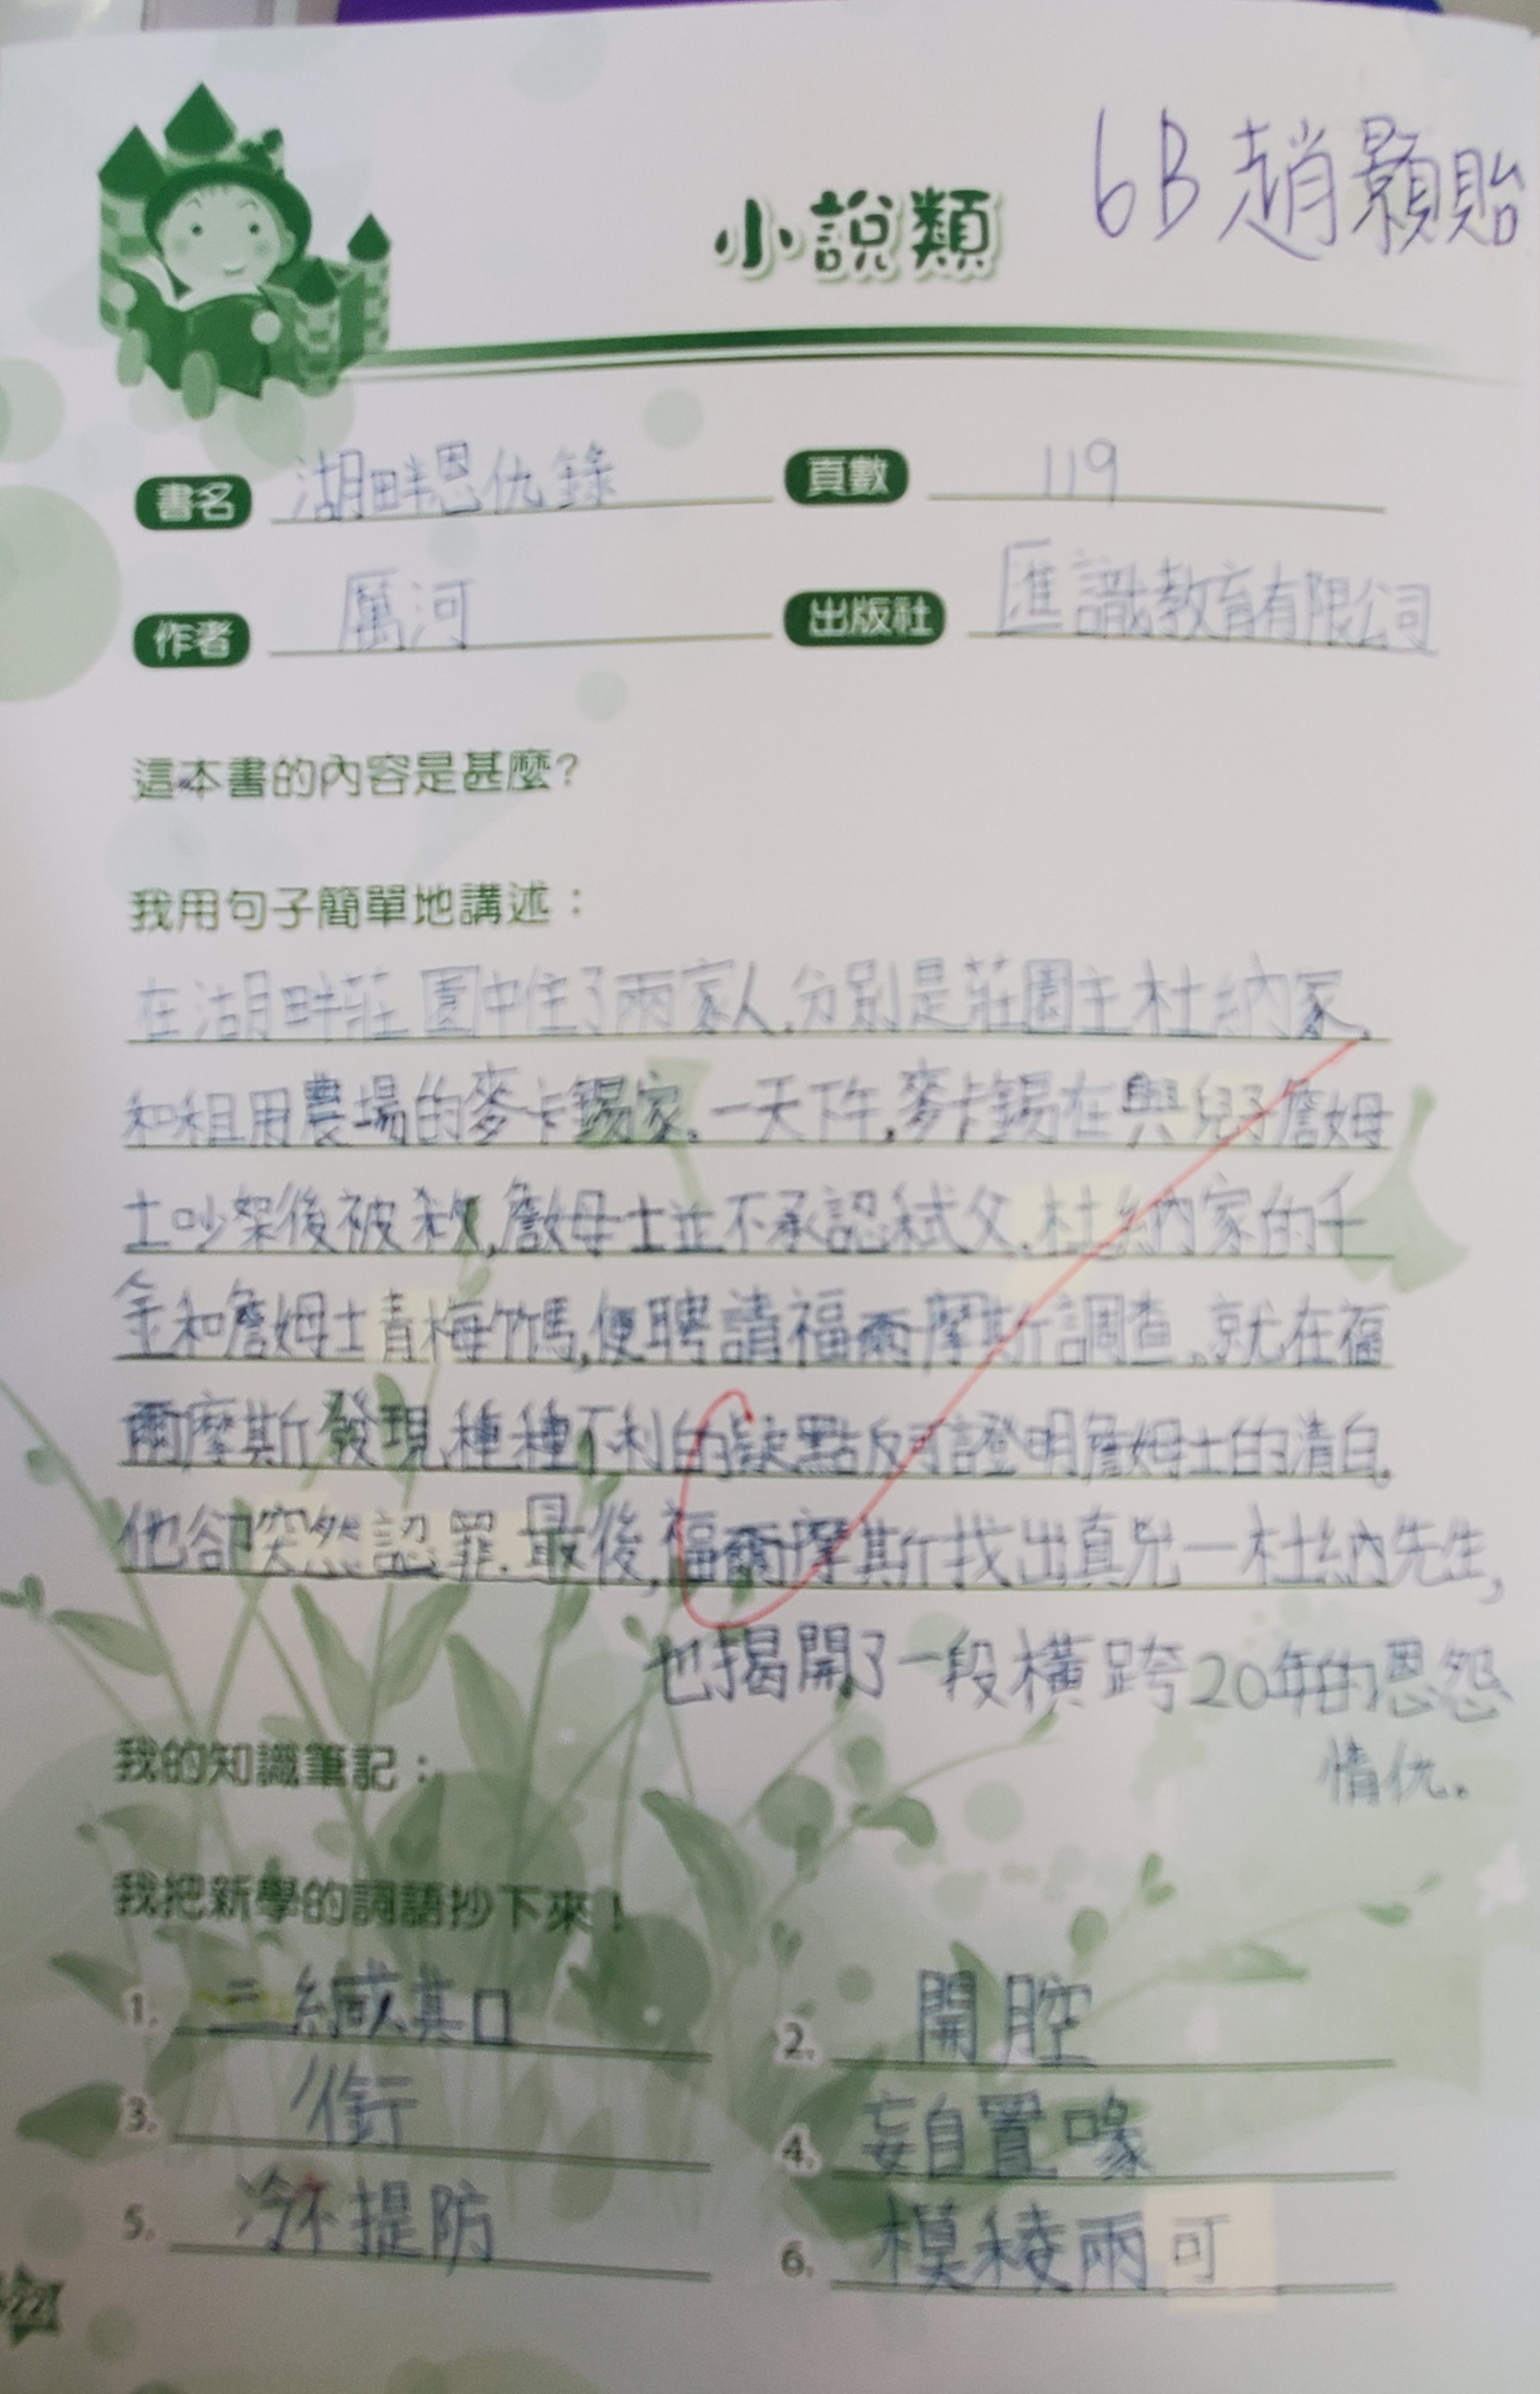 小說類
6B 趙顥貽
書名 湖畔恩仇錄
頁數 119
作者 厲河
出版社 匯識教育有限公司
這本書的內容是甚麼?
我用句子簡單地講述：
在湖畔莊園中住了兩家人,分別是莊園主杜納家,
和租用農場的麥卡錫家。一天下午,麥卡錫在與兒子詹姆
士吵架後被殺,詹姆士並不承認弒父。杜納家的千
金和詹姆士青梅竹馬,便聘請福爾摩斯調查。就在福
爾摩斯發現種種不利的疑點反可證明詹姆士的清白。
他卻突然認罪。最後,福爾摩斯找出真兇—杜納先生,
也揭開了一段橫跨20年的恩怨
情仇。
我的知識筆記：
我把新學的詞語抄下來！
1. 三緘其口
2. 開腔
3. 銜
4. 妄自置喙
5. 冷不提防
6. 模稜兩可
22